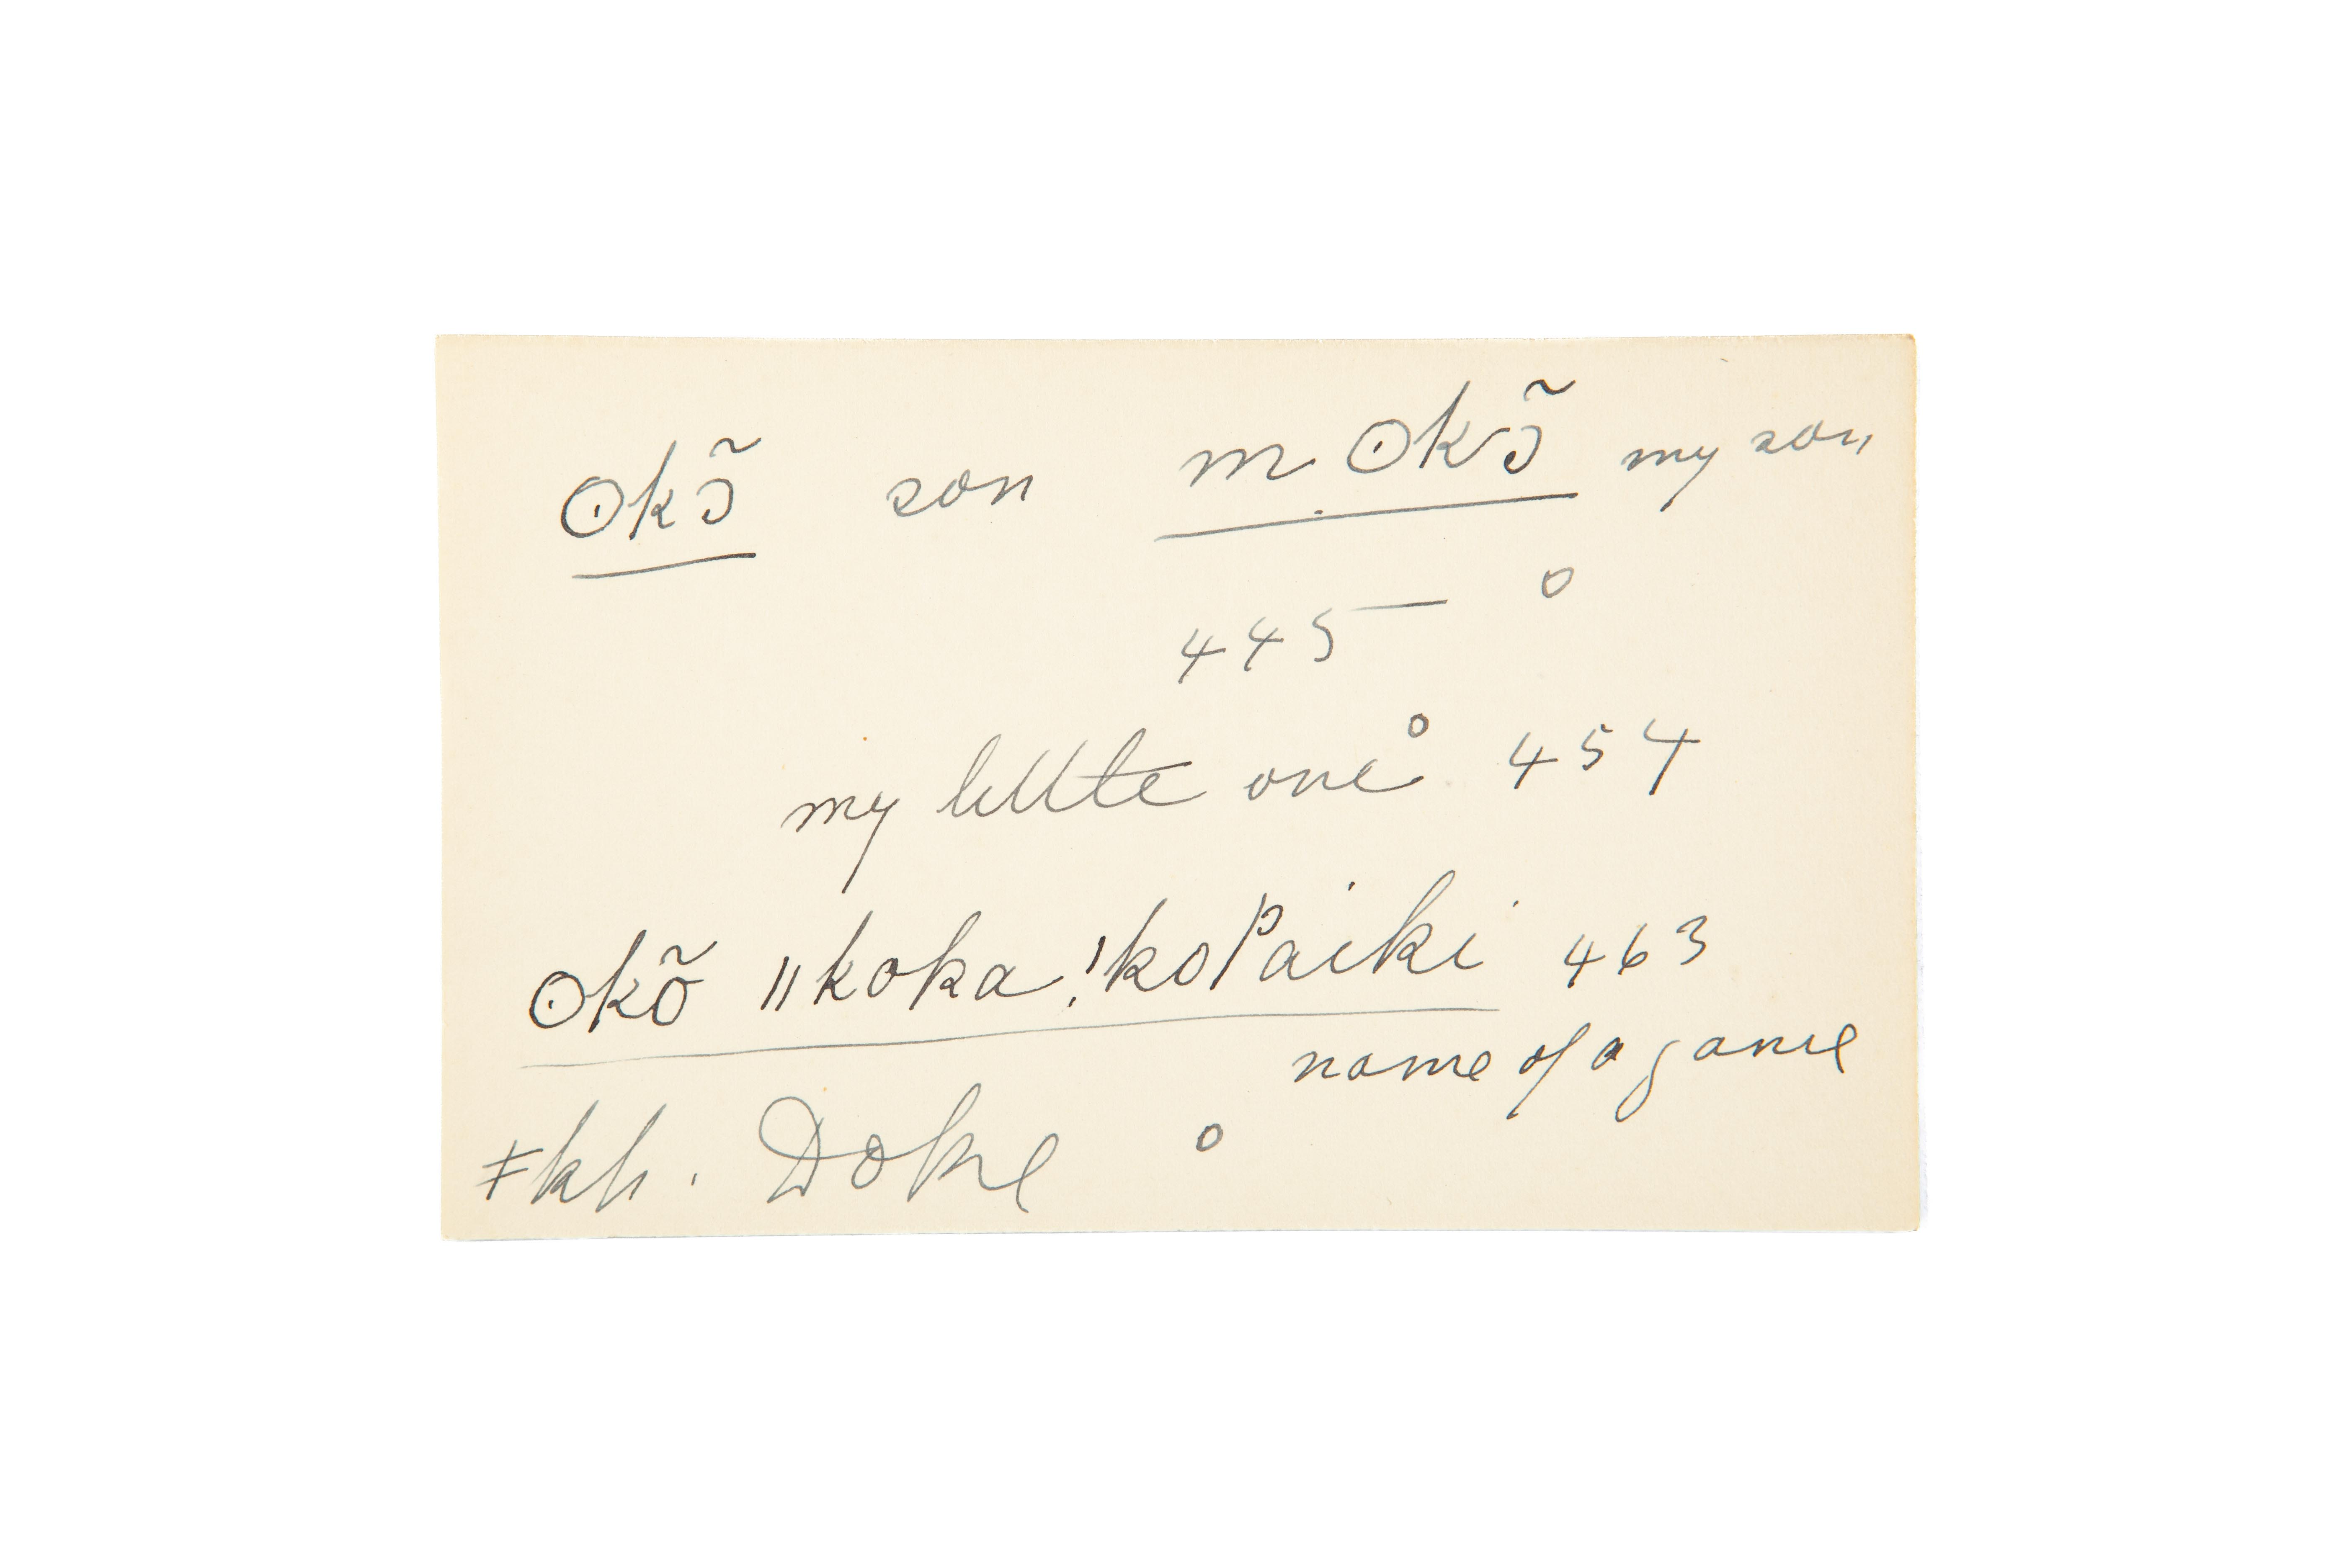 ʘkɔ̃ son m ʘkɔ̃ my son
445 o
my little one o 454
ʘkõ ǁkoka !koPaiki 463
name of a game
ǂkh. Doke o